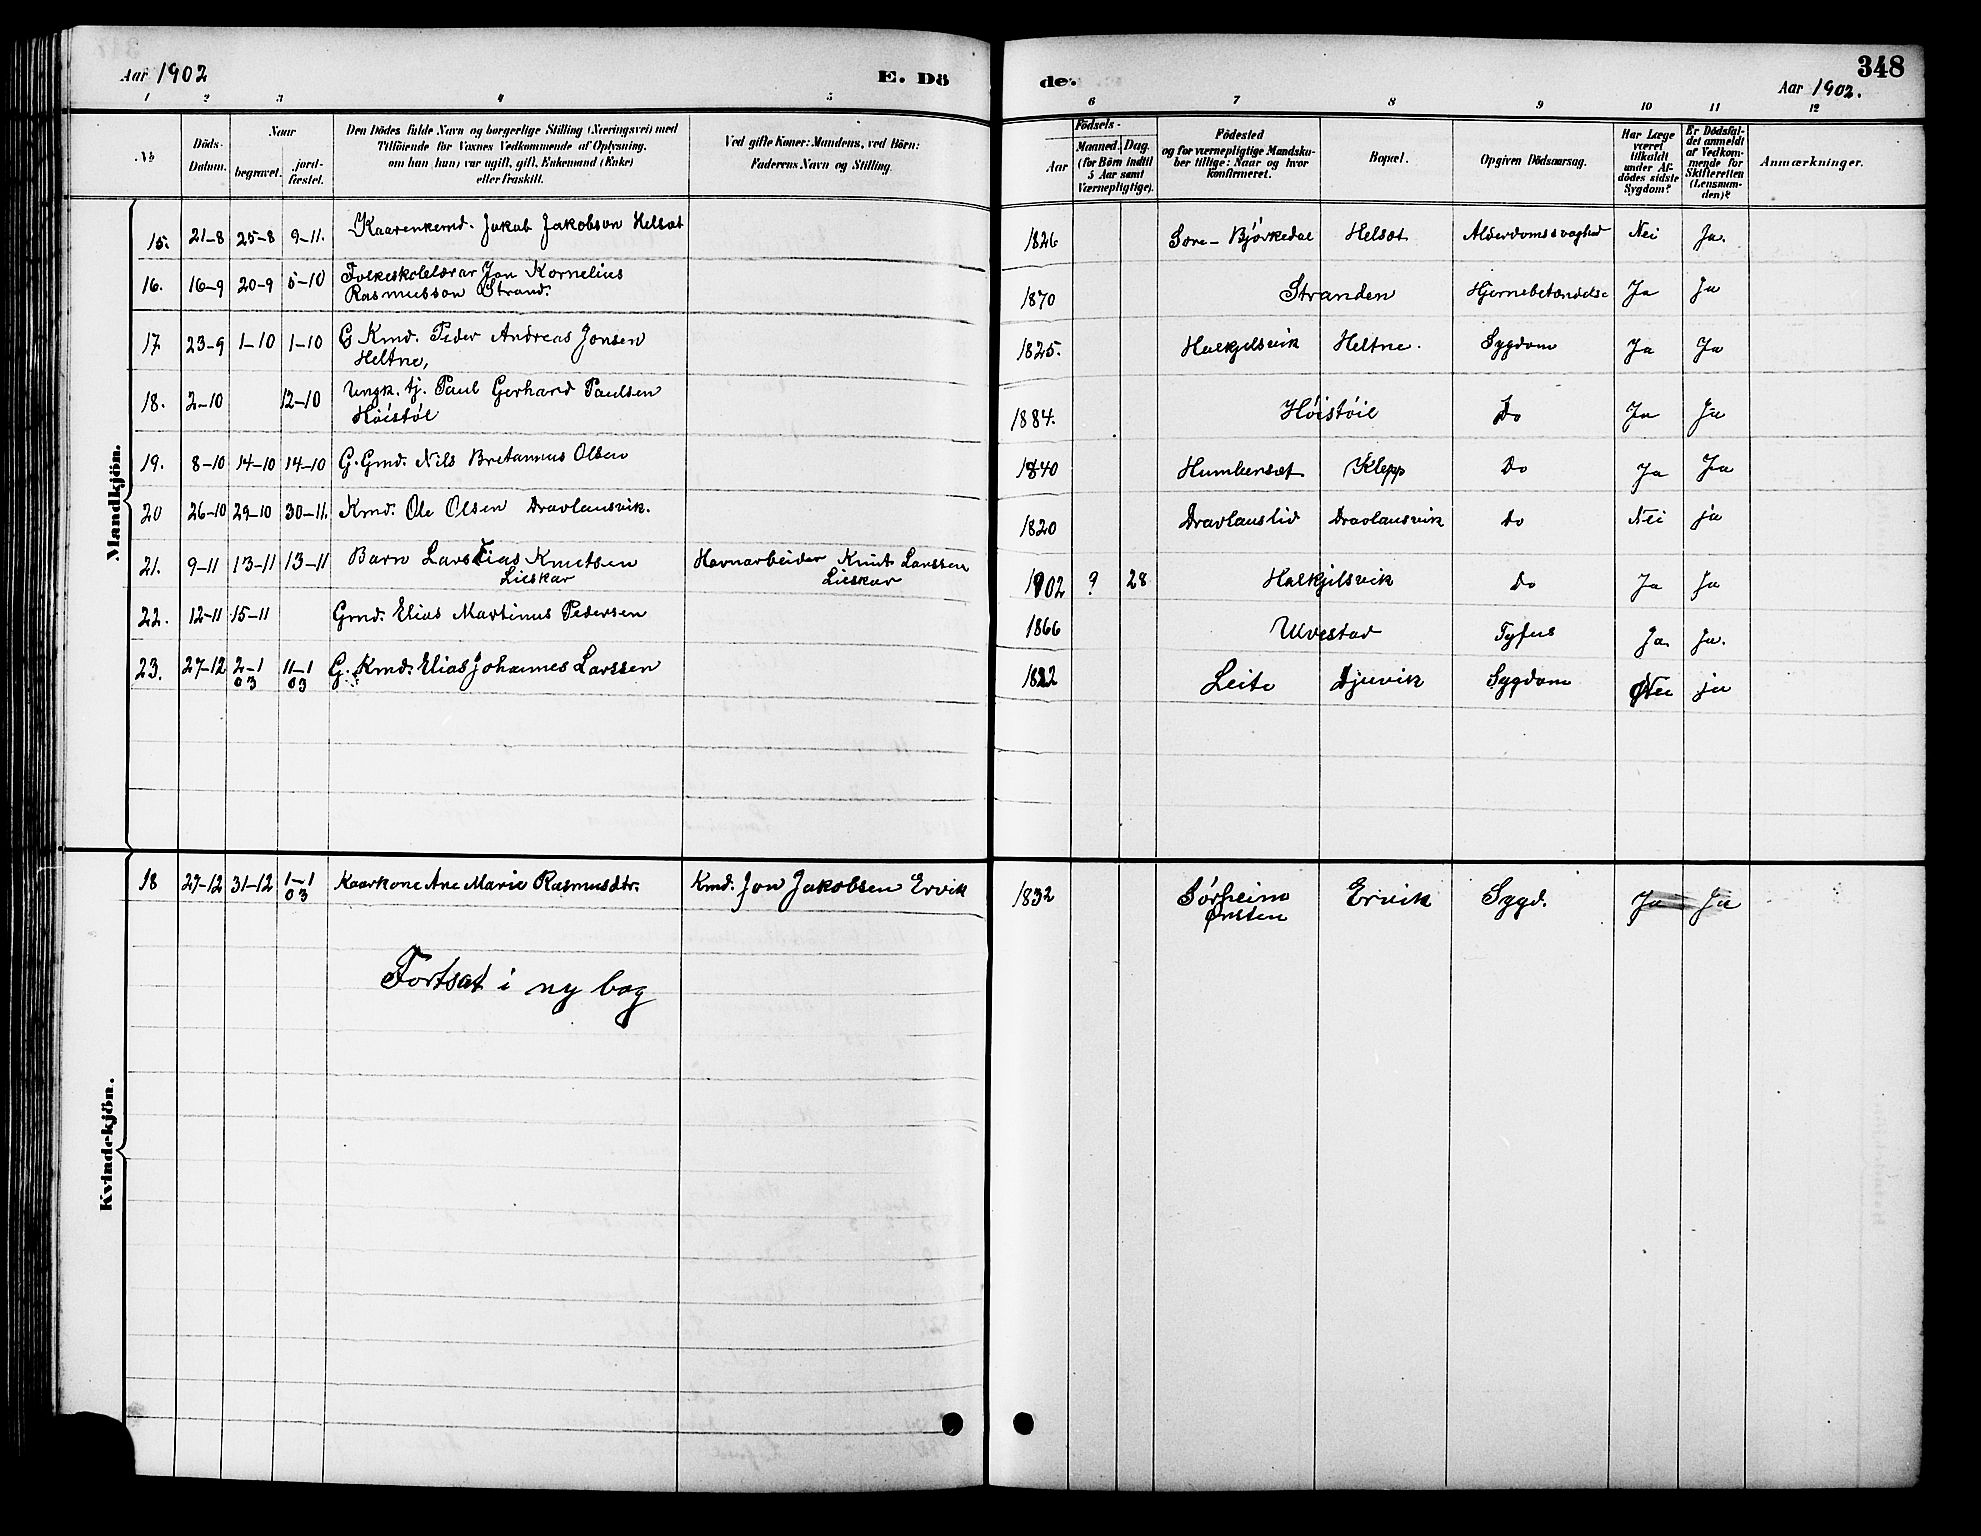 Aar 1902
E. Dö
de.
348
Aar 1902.
1 2 3 4 5
6 7 8 9 10 11 12
No
Döds-Datum.
Naar
begravet.
jord-fæstet.
Den Dödes fulde Navn og borgerlige Stilling (Næringsvei) med
Tilföiende for Voxnes Vedkommende af Oplysning,
om han (hun) var ugift, gift, Enkemand (Enke)
eller fraskilt.
Ved gifte Koner: Mandens, ved Börn:
Faderens Navn og Stilling.
Födsels-
Aar
Maaned. Dag.
(for Börn indtil
5 Aar samt
Værnepligtige).
Födested
og for værnepligtige Mandska-
ber tillige: Naar og hvor
konfirmeret.
Bopæl.
Opgiven Dödsaarsag.
Har Læge
været
tilkaldt
under Af-
dödes sidste
Sygdom?
Er Dödsfal-
det anmeldt
af Vedkom-
mende for
Skifteretten
(Lensman-
den)?
Anmærkninger.
Mandkjön.
15. 21-8 25-8 9-11. Kaarenkemd. Jakob Jakobson Helset 1826 Söre-Björkedal Helset Alderdomssvaghed Nei Ja.
16. 16-9 20-9 5-10 Folkeskolelærar Jon Kornelius
Rasmusson Strand. 1870 Stranden Hjernebetændelse Ja Ja
17. 23-9 1-10 1-10 G Kmd. Peder Andreas Jonsen
Heltne, 1825. Halkjelsvik Heltne. Sygdom Ja Ja
18. 2-10 12-10 Ungk. tj. Paul Gerhard Paulsen
Höistöl 1884. Höistöil Do Ja Ja
19. 8-10 14-10 14-10 G. Gmd. Nils Bretannus Olsen 1840 Humberset Klepp Do Ja Ja
20 26-10 29-10 30-11. Kmd. Ole Olsen Dravlausvik. 1820 Dravlauslid Dravlausvik Do Nei ja
21. 9-11 13-11 13-11 Barn Lars Elias Knutsen
Lieskar
Havnarbeider Knut Larssen
Lieskar 1902 9 28 Halkjelsvik Do Ja Ja
22. 12-11 15-11 Gmd. Elias Martinus Pedersen 1866 Ulvestad Tyfus Ja Ja.
23. 27-12 2-1 03 11-1 03 G. Kmd. Elias Johannes Larssen 1822 Leite Djuvik Sygdom Nei ja
Kvindekjön.
18 27-12 31-12 1-1 03 Kaarkone Ane Marie Rasmusdtr. Kmd. Jon Jakobsen Ervik 1832 Sörheim
Örsten Ervik Sygd. Ja Ja
Fortsat i ny bog